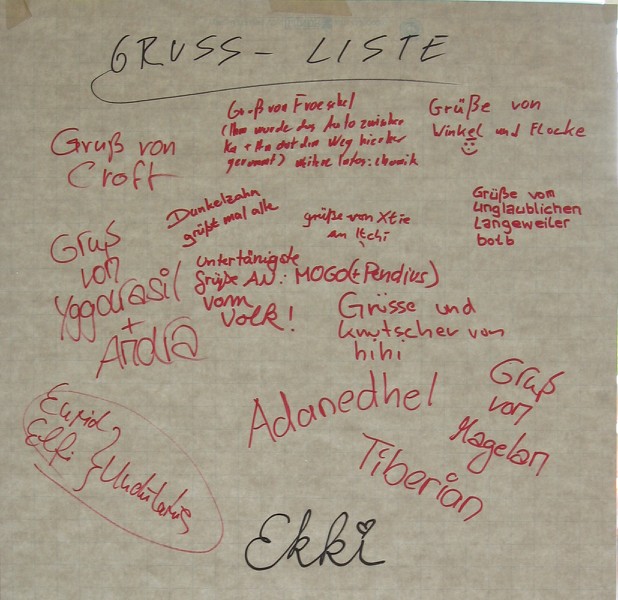 GRUSS - LISTE
Gruß von Froeschel
(Ihm wurde das Auto zwischen
Ka + Ha auf dem Weg hierher
gerammt)
Grüße von
Winkel und Flocke
Gruß von
Croft
Dunkelzahn
grüßt mal alle
grüße von Xtie
an Itchi
Grüße vom
unglaublichen
Langeweiler
botb
Gruß
von
Yggdrasil
+
Andra
untertänigste
Grüße AN: MOGO(+Pendius)
vom
Volk!
Grüsse und
knutscher von
hihi
Adanedhel
Gruß
von
Magelan
Tiberian
Elfi
Ekki